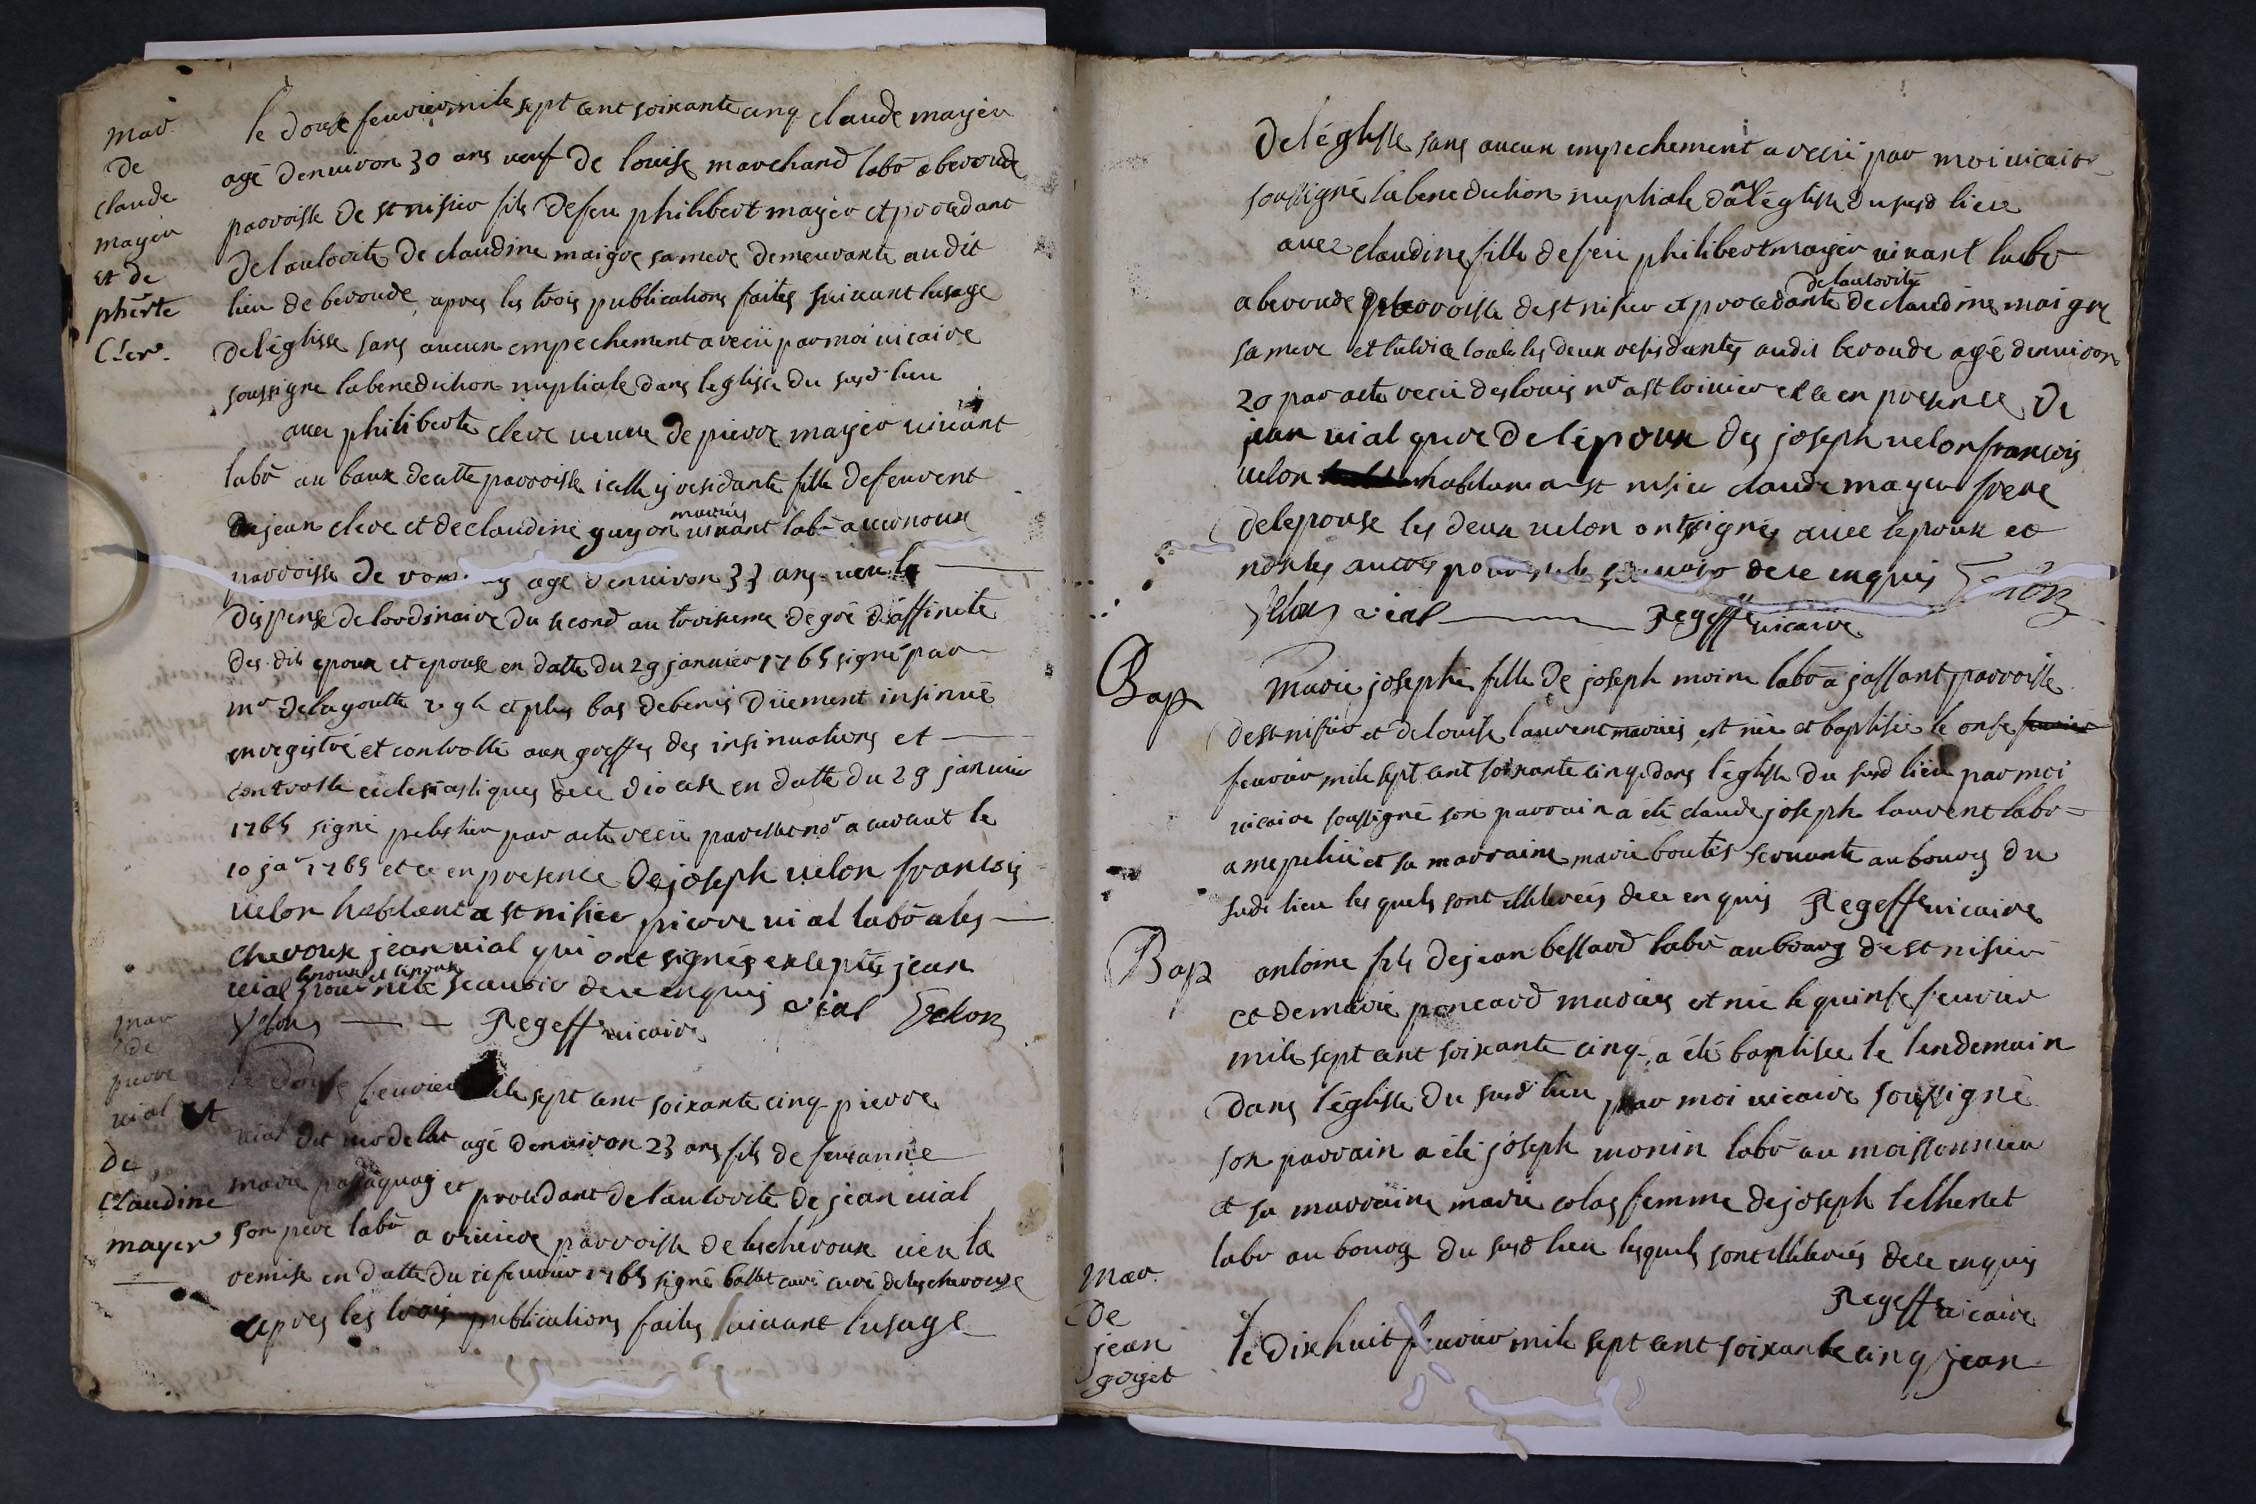 mar
de
claude
mayer
et de
philberte
Clerc.
le douze feuvier mile sept cent soixante cinq claude mayer
agé denuiron 30 ans veuf de louise marchand labr a beroude
parroisse de st nisier fils defeu philibert mayer et procedant
delautorite de claudine maigre sa mere demeurante au dit
lieu de beroude, apres les trois publications faites suivant lusage
deléglisse sans aucun empechement a recü par moi vicaire
soussigne la benediction nuptiale dans leglisse du susd lieu
avec philiberte clerc veuve de pierre mayer vivant
labr au baux de cette parroisse icelle y residante fille defeuvent
jean clerc et de claudine guyon mariés vivant labr a
parroisse de agé denuiron 33 ans veu la
dispense de lordinaire du second au troisieme degré daffinite
des dits epoux et epouse en datte du 29 januier 1765 signé par
mr delagoutte v g l et plus bas debenis düement insinué
enregistré et controllé aux greffes des insinuations et
controlle ecclesiastiques de ce diocese en datte du 29 januier
1765 signé par acte recü par nor a cuisaut le
10 jar 1765 et ce en presence de joseph velon francois
velon habitant a st nisier pierre vial labr a les
cheroux jean vial qui ont signés exceptés jean
vial lepoux et lepouse pour ne le scauoir de ce enquis vial Velon
Velon Regeffe vicaire
mar
de
pierre
vial et
de
Claudine
mayer
le douze feuvier mile sept cent soixante cinq pierre
vial dit agé denuiron 23 ans fils de feu anne
marie et procedant delautorite de jean vial
son pere labr a parroisse de lescheroux veu la
remise en datte du feuvrier 1765 signé ballet curé curé de lescheroux
apres les trois publications faites suiuant lusage
deléglisse sans aucun empechement a recü par moi vicaire
soussigné la benediction nuptiale dans léglisse du susd lieu
avec claudine fille de feü philibert mayer vivant labr
a beroude parroisse de st nisier et procedante delautorité de claudine maigre
sa mere et tutrice toute les deux residantes au dit beroude agé denuiron
20 par acte recü de louis nr a st et ce en presence de
jean vial frere de lépoux de joseph velon francois
velon habitant a st nisier claude mayer frere
delepouse les deux velon ont signés avec lepoux et
non les autres pour ne le scauoir de ce enquis Velon
Velon vial Regeffe vicaire
Bap
Marie josephe fille de joseph moine labr a jassant parroisse
de st nisier et de louise laurent mariés, est née et baptisée le onse
feuvier mile sept cent soixante cinq dans léglisse du susd lieu par moi
vicaire soussigné son parrain a été claude joseph laurent labr
a et sa marraine marie boutet servante au bourg du
susdt lieu les quels sont illiterés de ce enquis Regeffe vicaire
Bap
antoine fils de jean bessard labr au bourg de st nisier
et de marie poncard mariés est né le quinse feuvier
mile sept cent soixante cinq, a été baptisée le lendemain
dans léglisse du susd lieu par moi vicaire soussigné
son parrain a été joseph monin labr au moissonnier
et sa marraine marie colas femme de joseph
labr au bourg du susd lieu lesquels sont illiterés de ce enquis
Regeffe vicaire
Mar.
De
jean
goget
le dixhuit feuvier mile sept cent soixante cinq jean